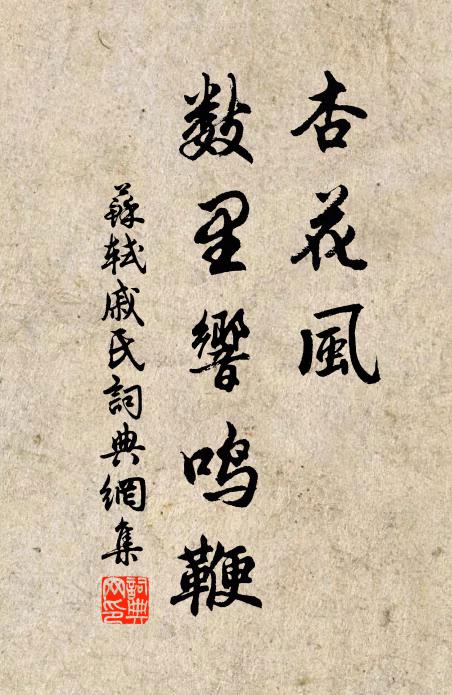 杏花風
數里響鳴鞭
蘇軾戚氏詞典網集
詞典网印